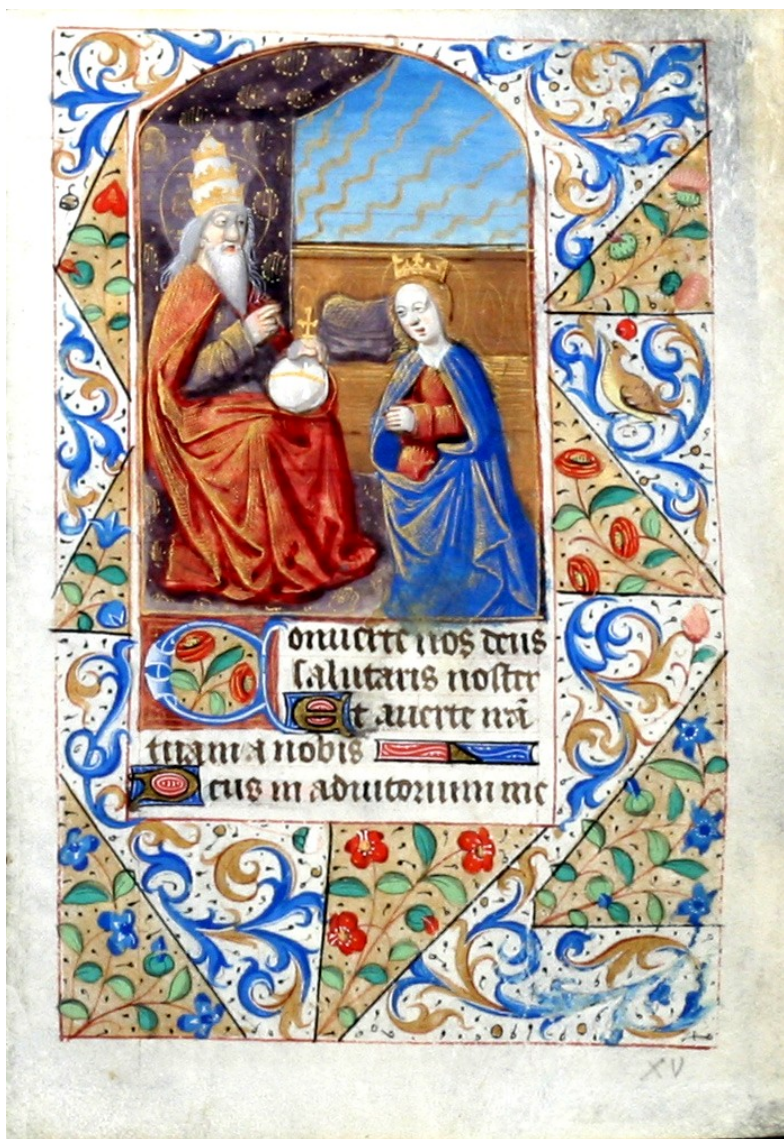 Conuerte nos deus
salutaris noster
Et auerte irã
tuam a nobis
Deus in adiutorium me
XV